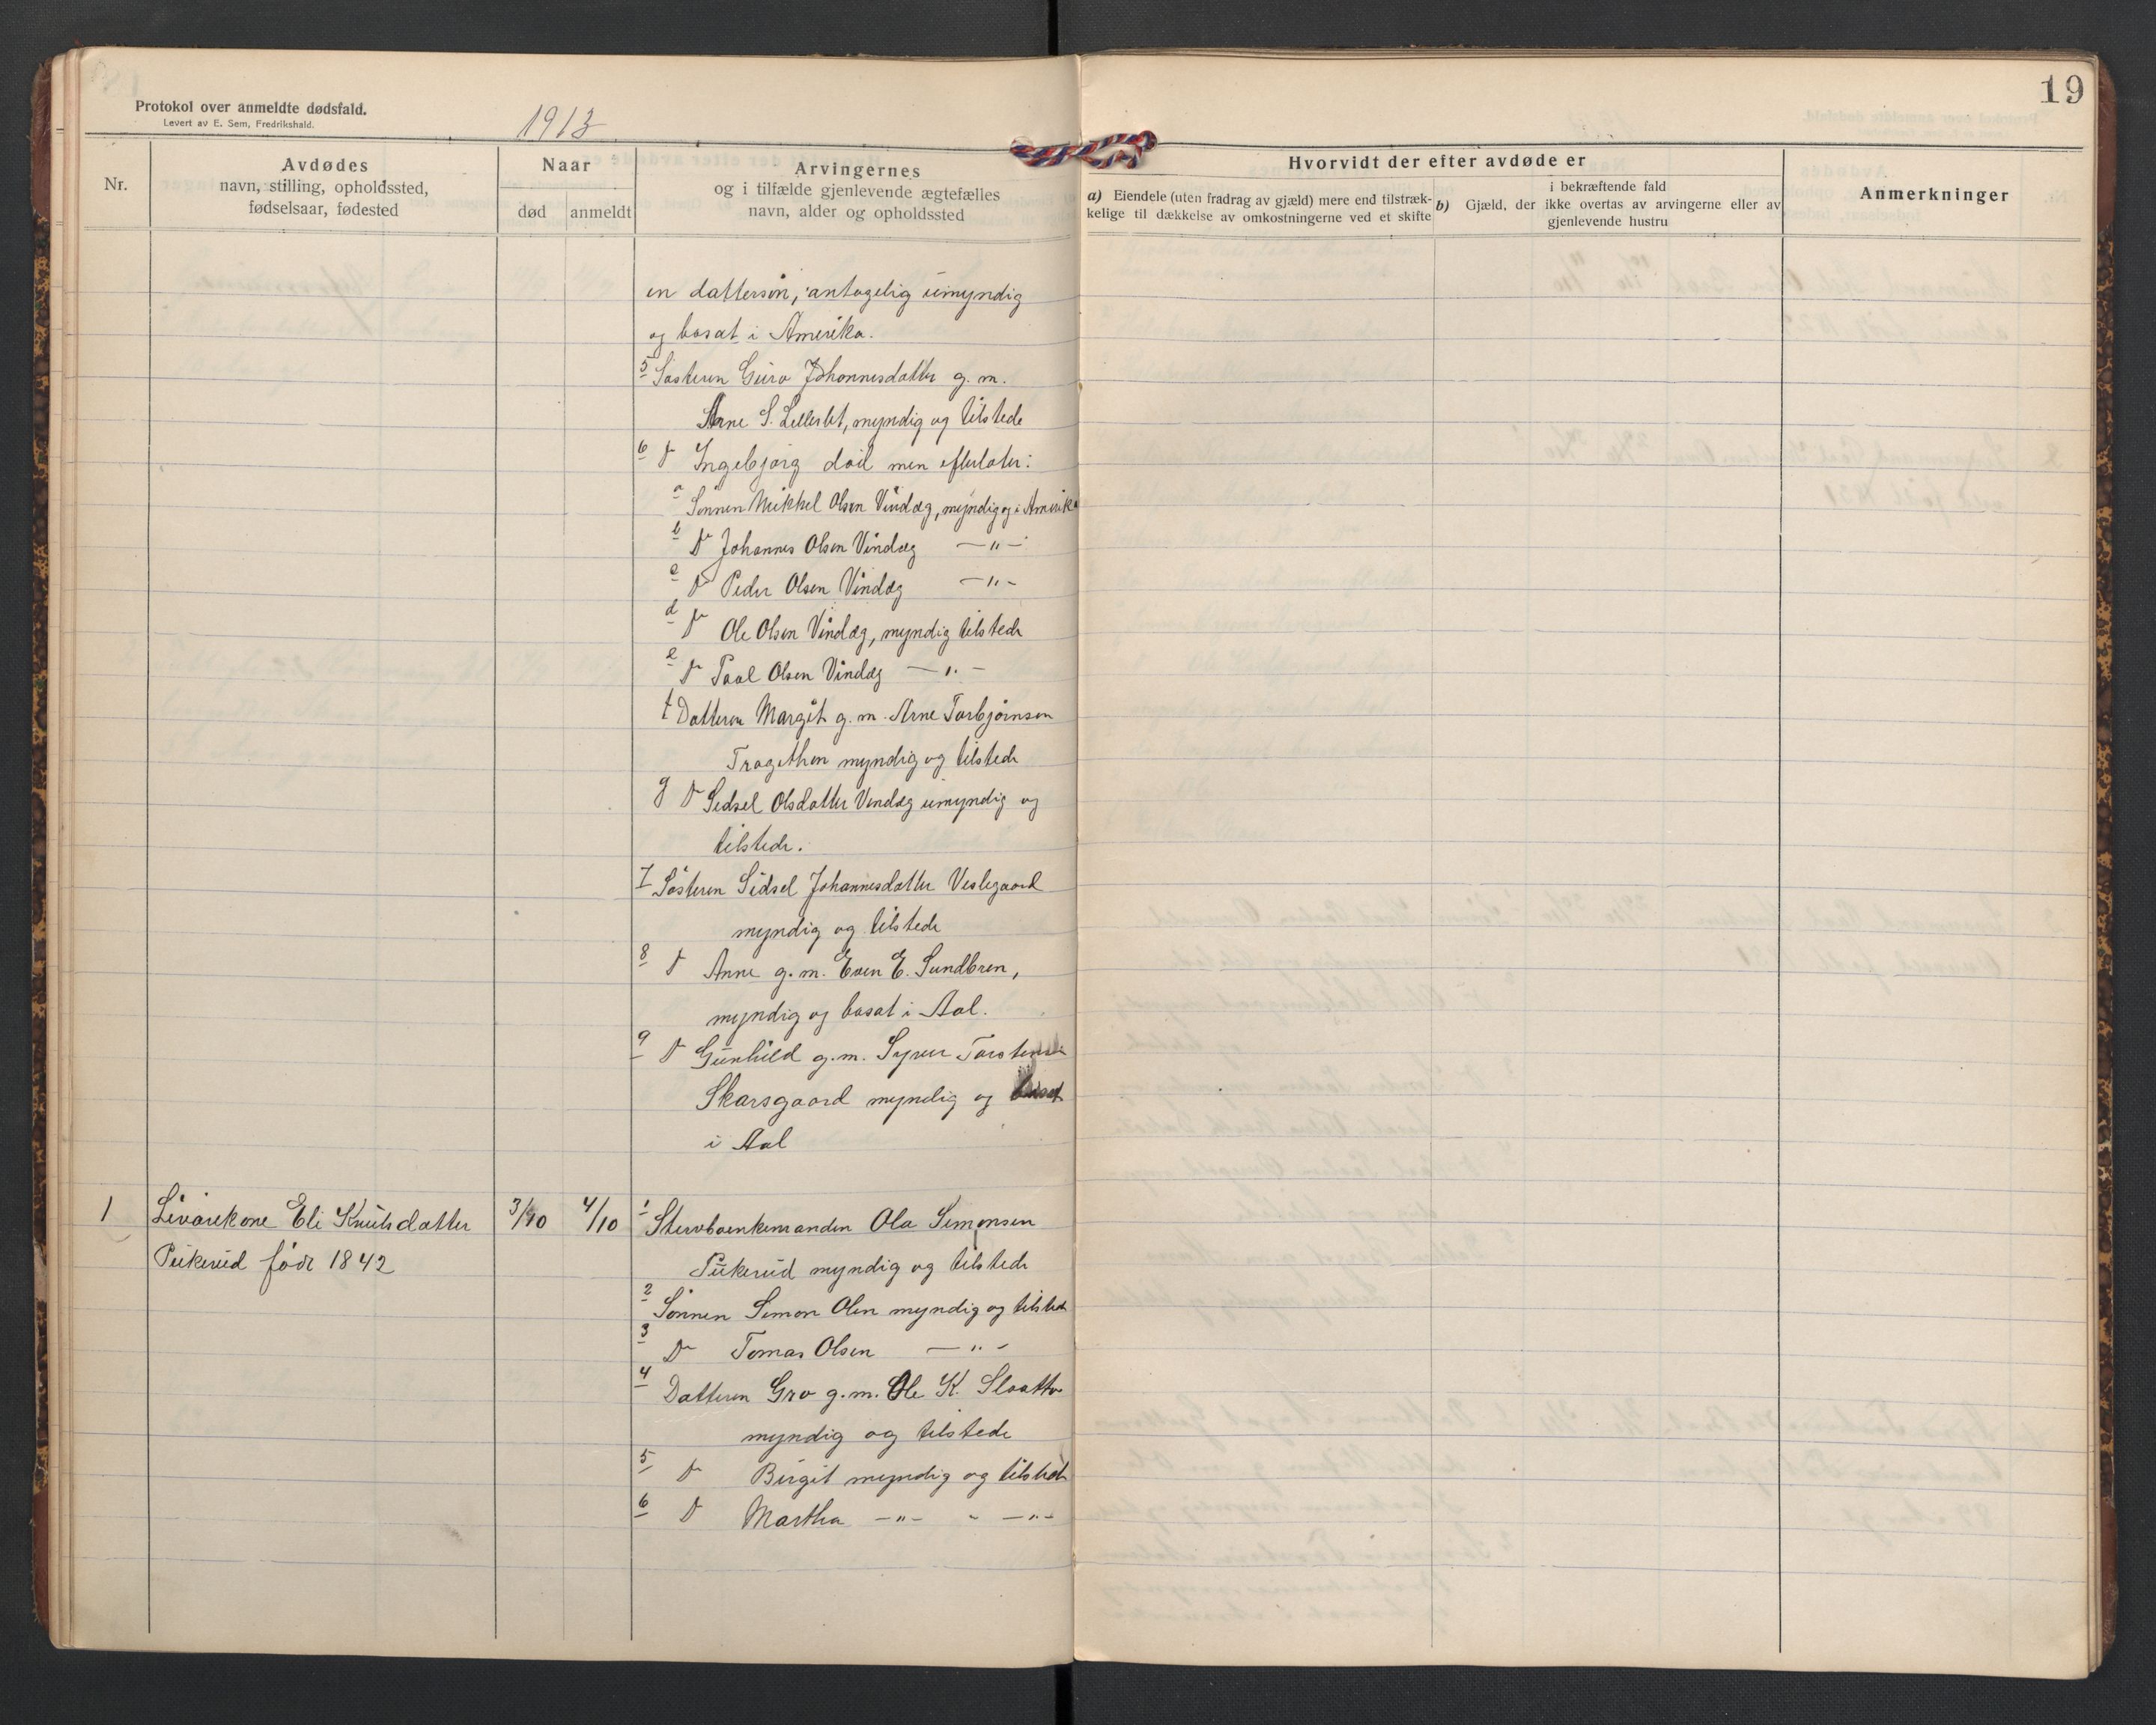 19
Protokol over anmeldte dødsfald.
Levert av E. Sem, Fredrikshald.
1913
Nr.
Avdødes
navn, stilling, opholdssted,
fødselsaar, fødested
Naar
død
anmeldt
Arvingernes
og i tilfælde gjenlevende ægtefælles
navn, alder og opholdssted
Hvorvidt der efter avdøde er
a) Eiendele (uten fradrag av gjæld) mere end tilstræk-
kelige til dækkelse av omkostningerne ved et skifte
i bekræftende fald
b) Gjæld, der ikke overtas av arvingerne eller av
gjenlevende hustru
Anmerkninger
en dattersøn, antagelig umyndig
og bosat i Amerika.
5 Søsteren Guro Johannesdatter g. m.
Arne S. Lilleslet, myndig og tilstede
6 D Ingebjørg död men efterlater:
a Sønnen Mikkel Olsen Vindæg, myndig og i Amerika
b D Johannes Olsen Vindæg —"—
c D Peder Olsen Vindæg —"—
d D Ole Olsen Vindæg, myndig tilstede
e D Paal Olsen Vindæg —"—
f Datteren Margit g. m. Arne Torbjørnsen
Tragethon myndig og tilstede
g D Sidsel Olsdatter Vindæg umyndig og
tilstede.
7 Søsteren Sidsel Johannesdatter Veslegaard
myndig og tilstede
8 D Anne g. m. Even E. Sundbren,
myndig og bosat i Aal.
9 D Gunhild g. m. Syver Torstensen
Skarsgaard myndig og bosat
i Aal
1 Livørekone Eli Knutsdatter 3/10 4/10 1 Stervboenkemanden Ola Simonsen
Pukerud født 1842
Pukerud myndig og tilstede
2 Sønnen Simon Olsen myndig og tilstede
3 D Tomas Olsen —"—
4 Datteren Gro g. m. Ole K. Slaatto
myndig og tilstede
5 D Birgit myndig og tilstede
6 D Martha —"— " —"—